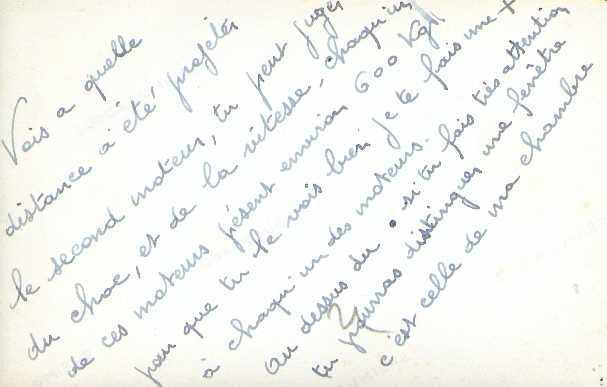 Vois a quelle
distance a été projeter
le second moteur, tu peut juger
du choc, et de la vitesse, chaqu'un
de ces moteurs pésent environ 600 Kgs
pour que tu le vois bien je te fais une +
à chaqu'un des moteurs.
au dessus du • si tu fais très attention
tu pourras distinguer une fenêtre
c'est celle de ma chambre